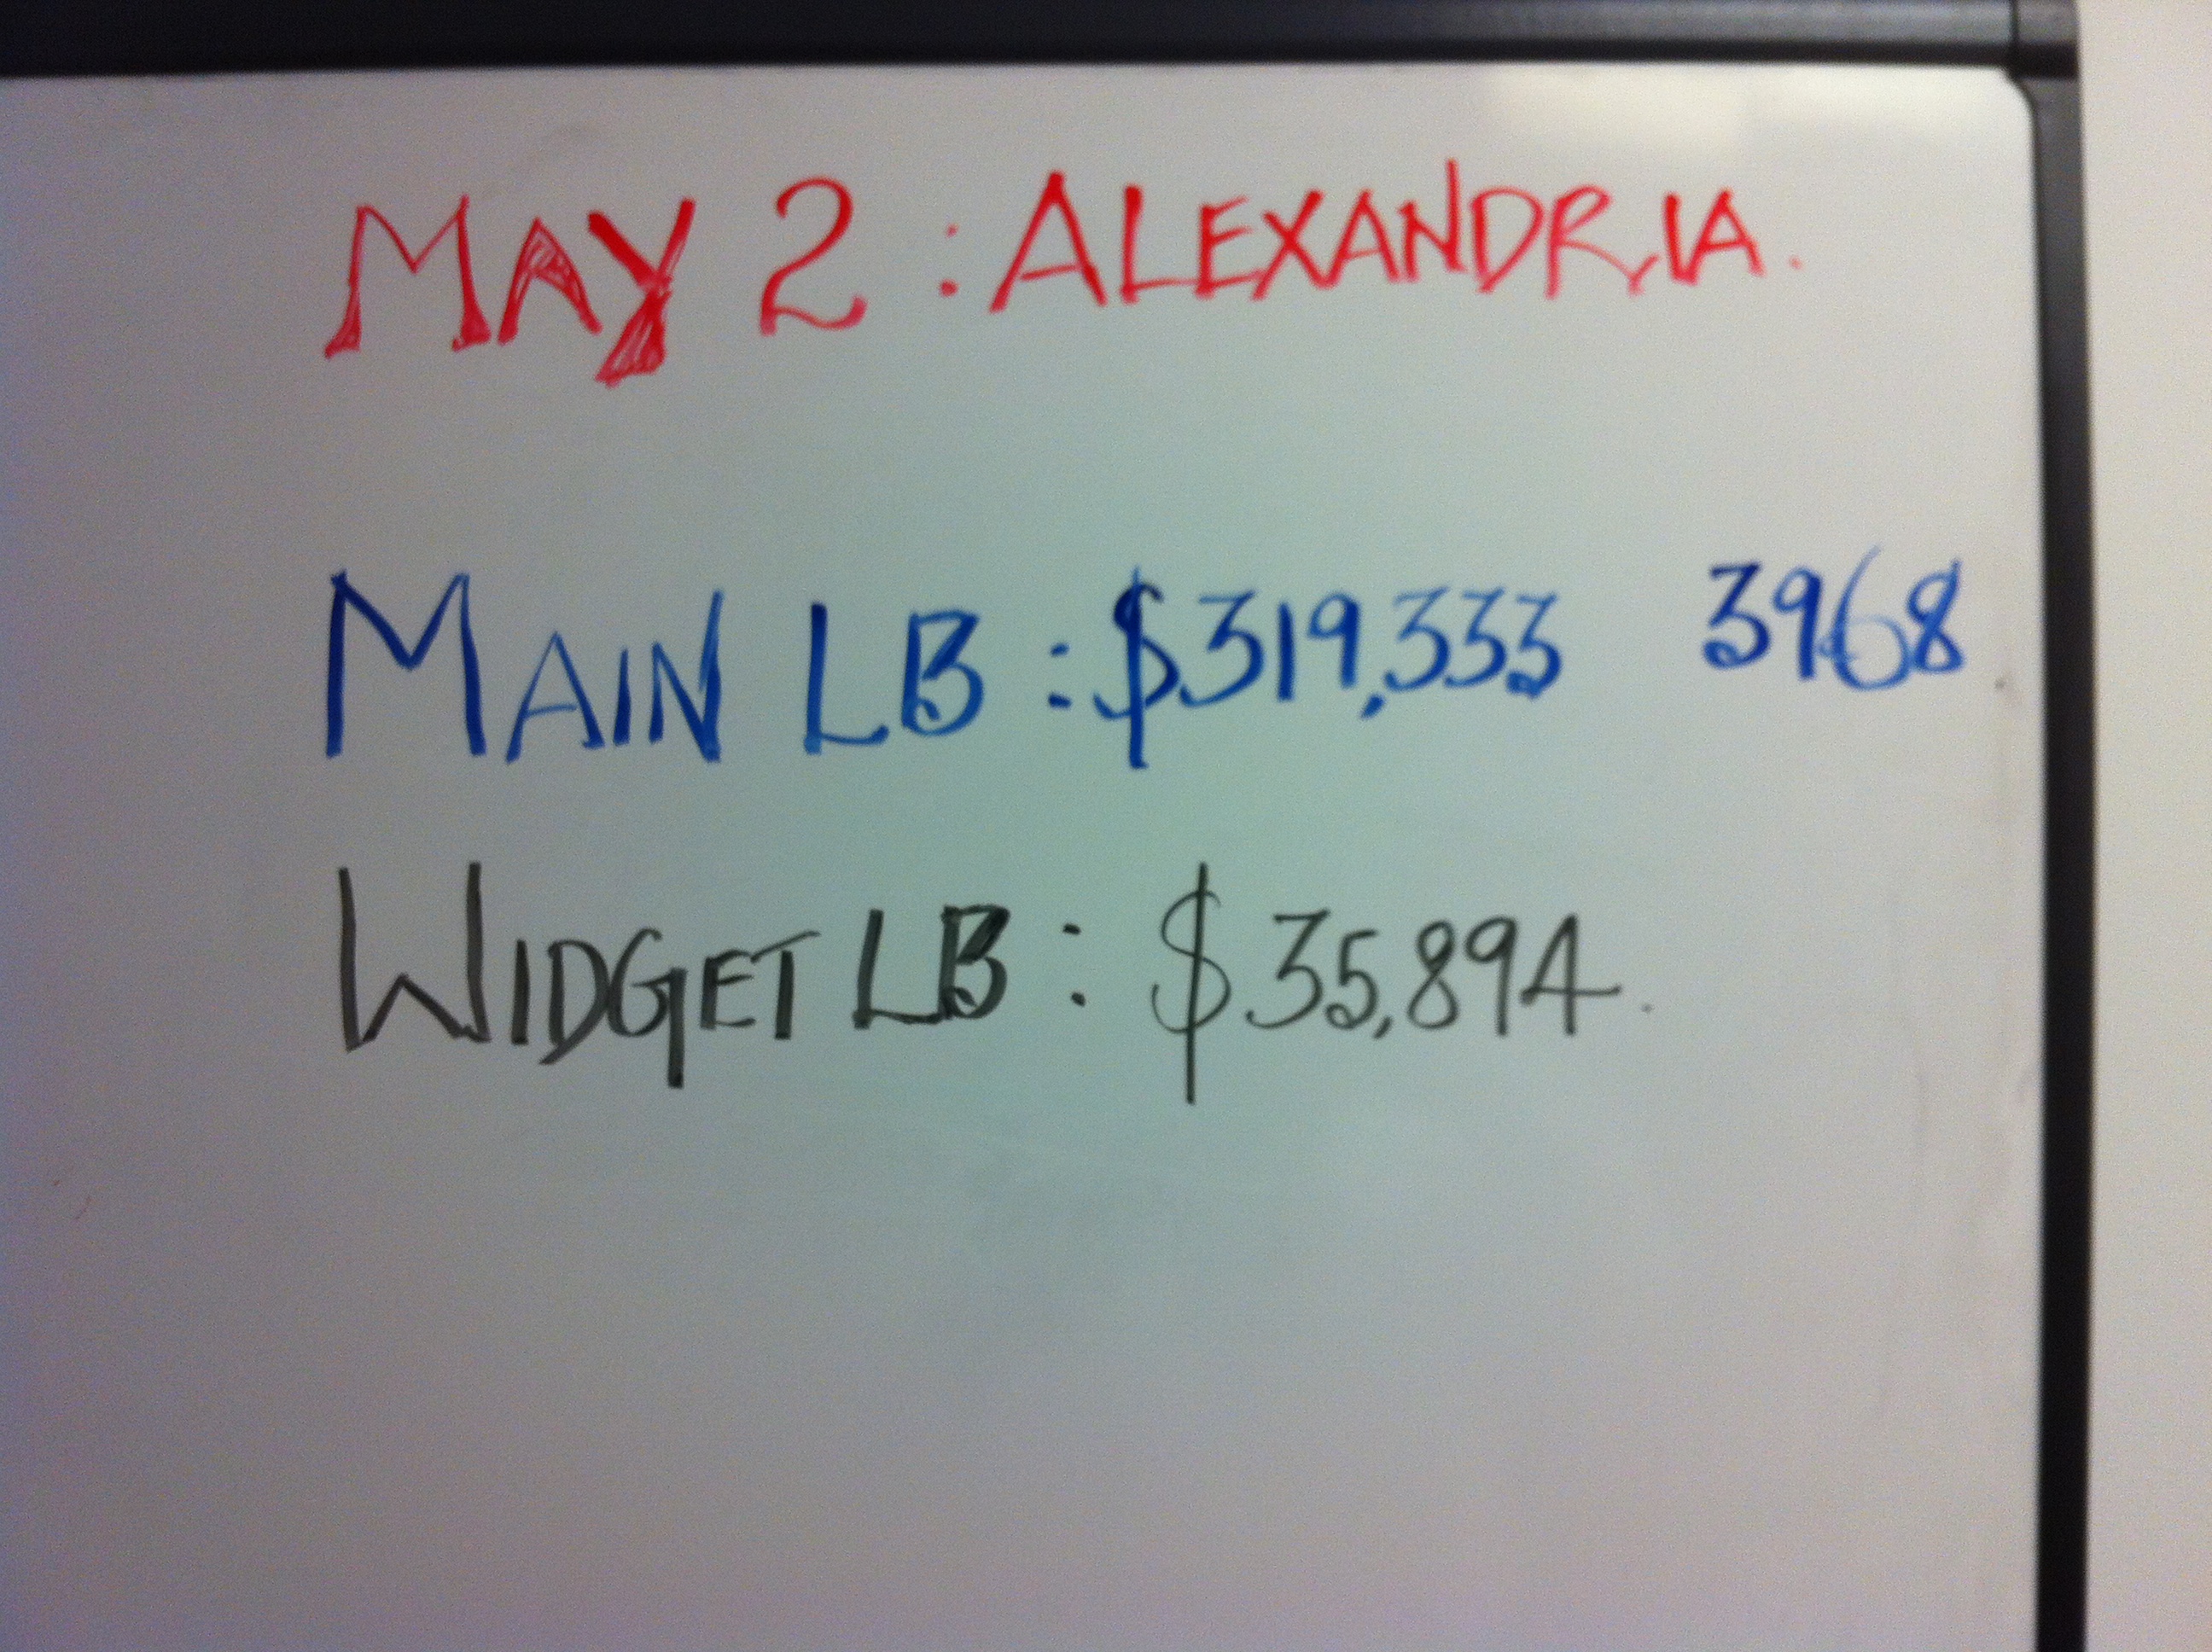 MAY 2 : ALEXANDRIA.
MAIN LB : $319,333 3968
WIDGET LB : $35,894.